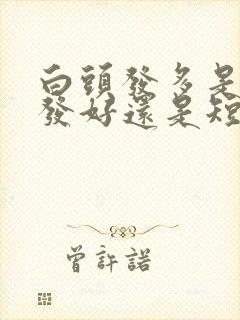 白頭發多是
發好還是短
曾許諾